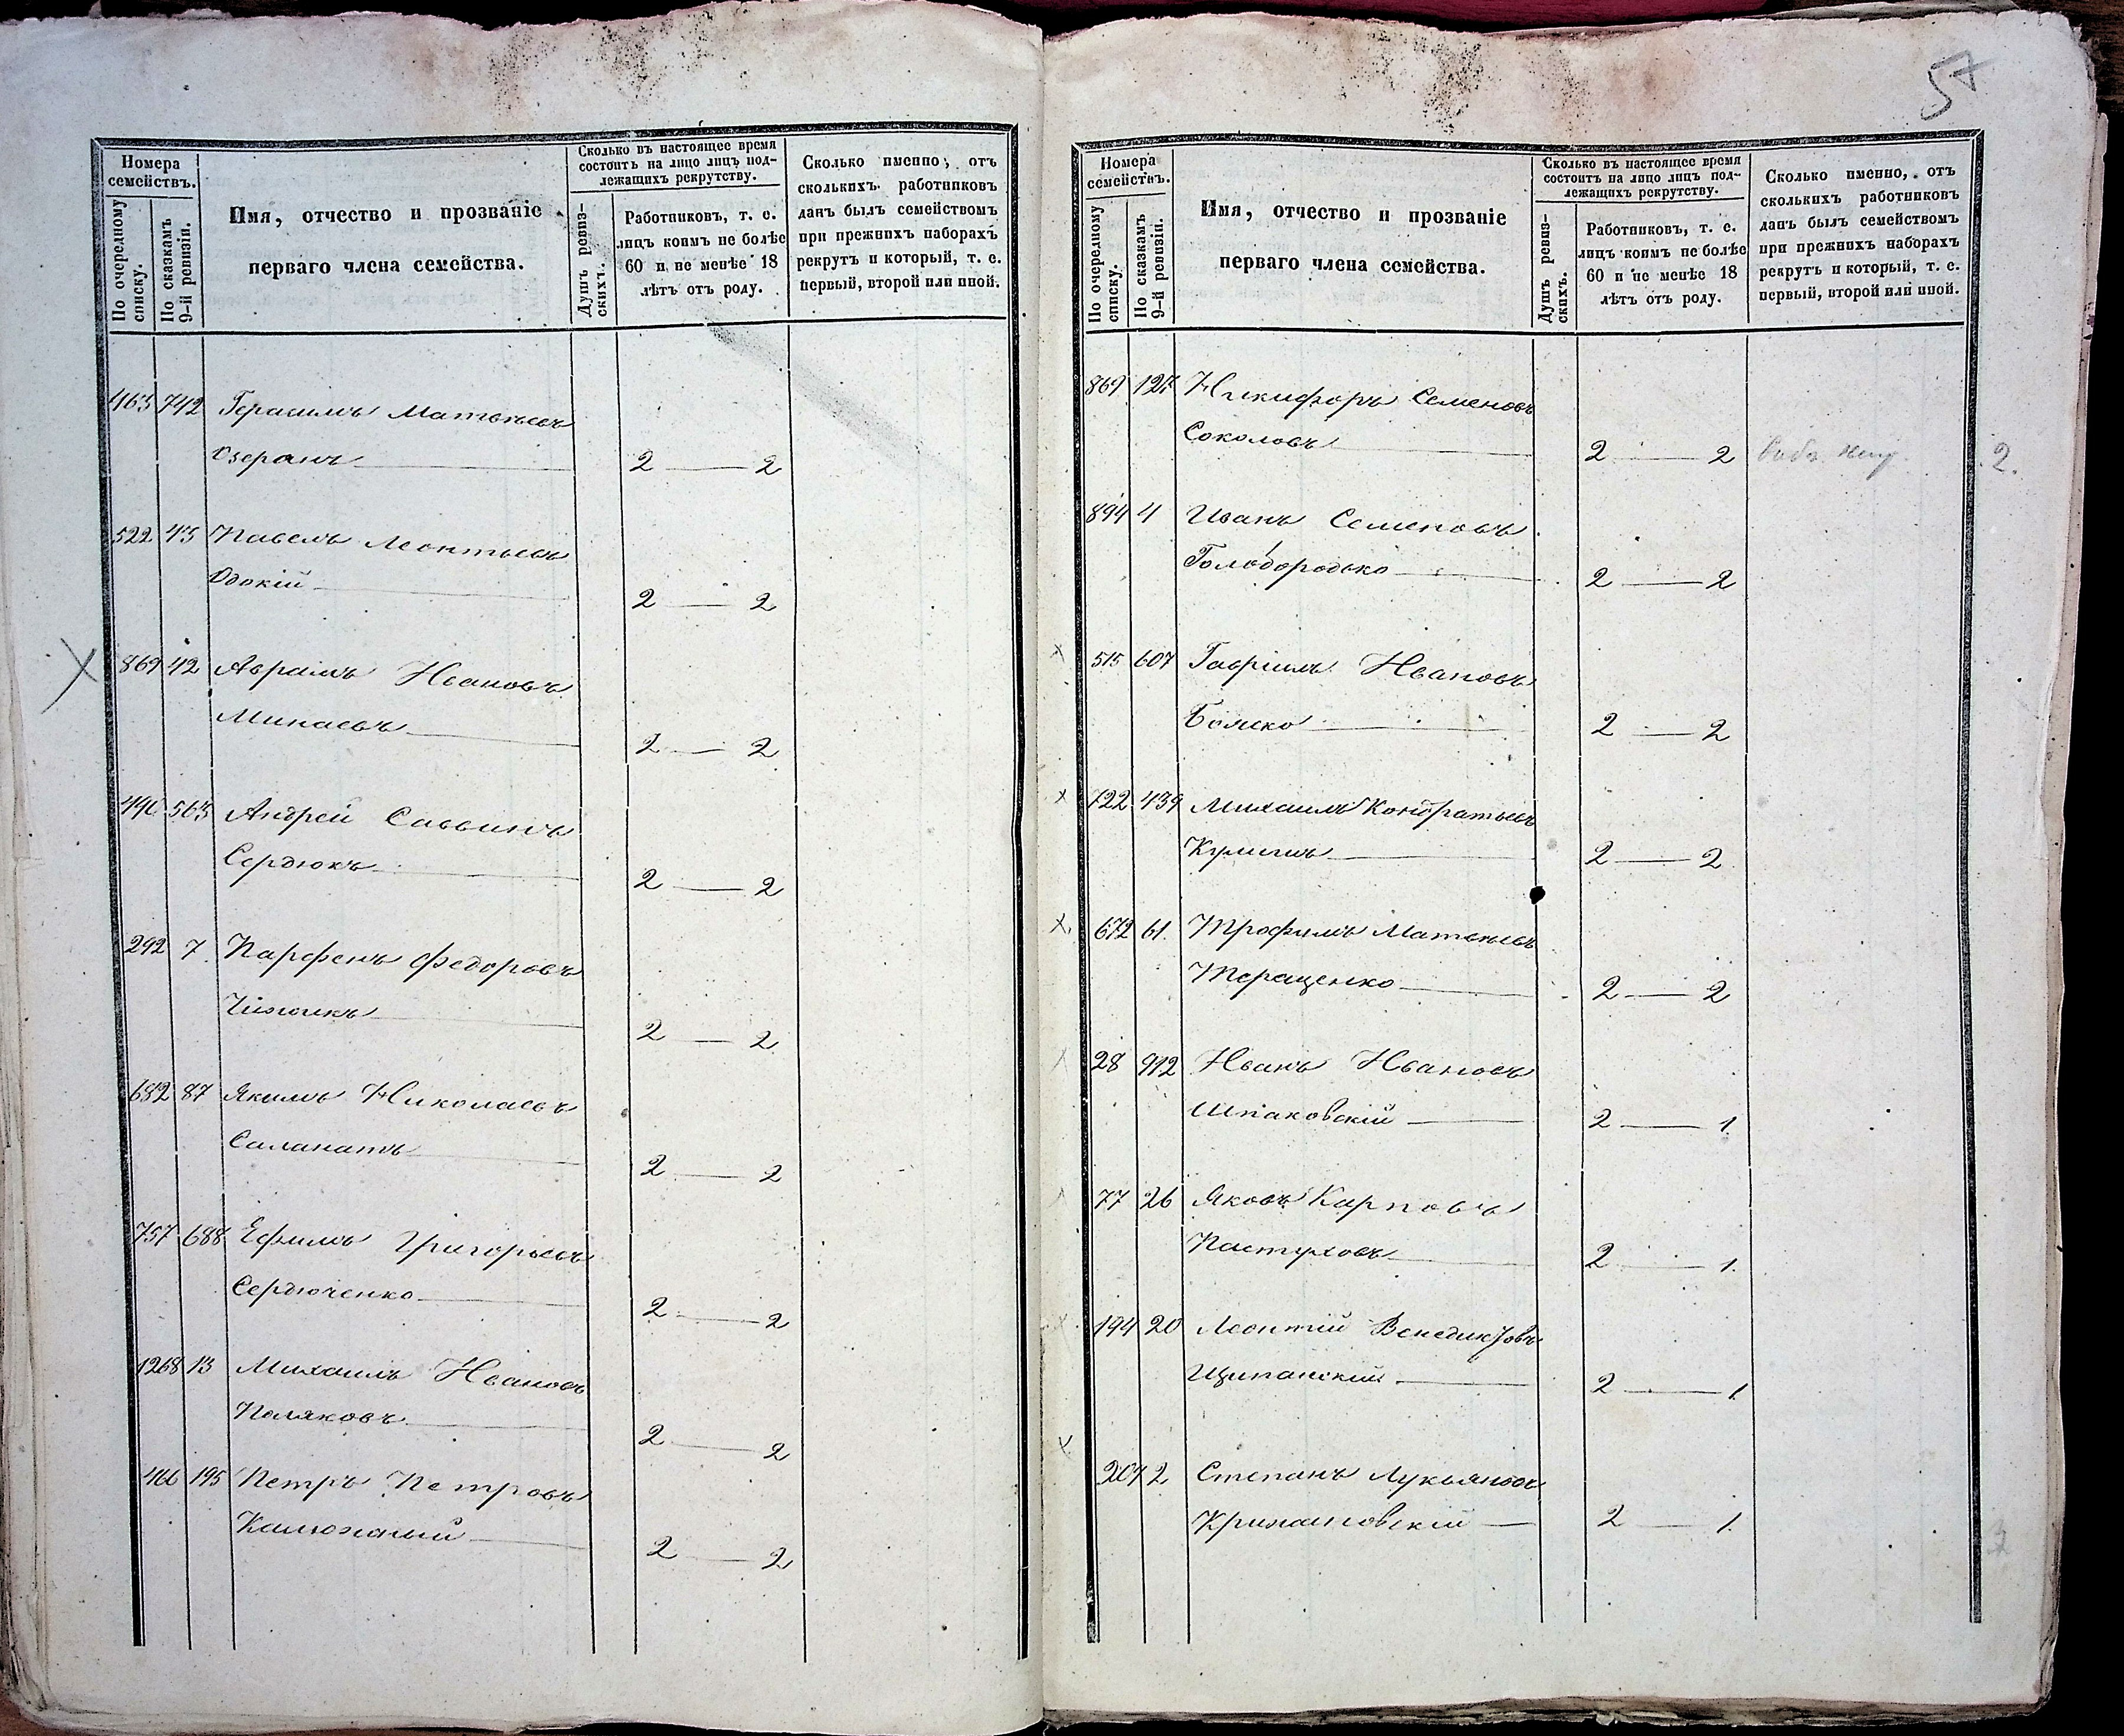 Номера
семействъ.
По очередному
списку.
По сказкамъ
9-й ревизіи.
Имя, отчество и прозваніе
перваго члена семейства.
Сколько въ настоящее время
состоитъ на лицо лицъ под-
лежащихъ рекрутству.
Душъ ревиз-
скихъ.
Работниковъ, т. е.
лицъ коимъ не болѣе
60 и не менѣе 18
лѣтъ отъ роду.
Сколько именно, отъ
сколькихъ работниковъ
данъ былъ семействомъ
при прежнихъ наборахъ
рекрутъ и который, т. е.
первый, второй или иной.
463 742 Герасимъ Матвѣевъ
Озеранъ 2 — 2
522 43 Павелъ Леонтьевъ
2 — 2
869 42 Авраамъ Ивановъ
Минаевъ 2 — 2
496 563 Андрей Саввинъ
Сердюкъ 2 — 2
292 7 Парфенъ Федоровъ
Чижикъ 2 — 2
682 87 Якимъ Николаевъ
Саланатъ 2 — 2
757 688 Ефимъ Григорьевъ
Сердюченко 2 — 2
1268 13 Михаилъ Ивановъ
Поляковъ 2 — 2
466 195 Петръ Петровъ
Калюжный 2 — 2
Номера
семействъ.
По очередному
списку.
По сказкамъ
9-й ревизіи.
Имя, отчество и прозваніе
перваго члена семейства.
Сколько въ настоящее время
состоитъ на лицо лицъ под-
лежащихъ рекрутству.
Душъ ревиз-
скихъ.
Работниковъ, т. е.
лицъ коимъ не болѣе
60 и не менѣе 18
лѣтъ отъ роду.
Сколько именно, отъ
сколькихъ работниковъ
данъ былъ семействомъ
при прежнихъ наборахъ
рекрутъ и который, т. е.
первый, второй или иной.
869 127 Никифоръ Семеновъ
Соколовъ 2 — 2 2.
894 4 Иванъ Семеновъ
Голобородько 2 — 2
515 607 Гавріилъ Ивановъ
Бойко 2 — 2
722 439 Михаилъ Кондратьевъ
Кулишъ 2 — 2
672 61 Трофимъ Матвѣевъ
Терещенко 2 — 2
28 912 Иванъ Ивановъ
Шпаковскій 2 — 1
77 26 Яковъ Карповъ
Пастуховъ 2 — 1
194 20 Леонтій Венедиктовъ
Щипанскій 2 — 1
207 2 Степанъ Лукьяновъ
Крижановскій 2 — 1